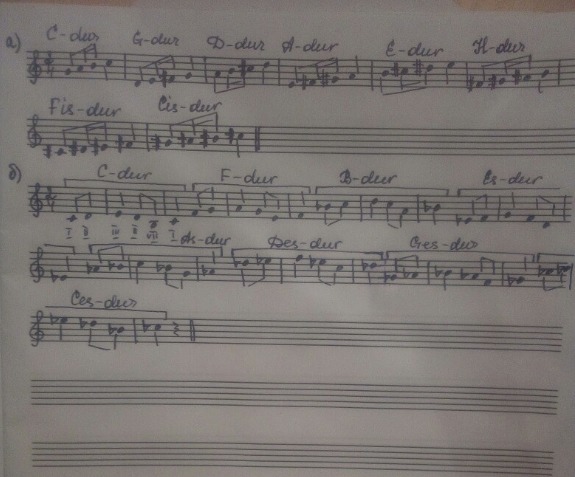 а) C-dur G-dur D-dur A-dur E-dur H-dur
Fis-dur Cis-dur
б) C-dur F-dur B-dur Es-dur
I II III II VII I As-dur Des-dur Ges-dur
Ces-dur